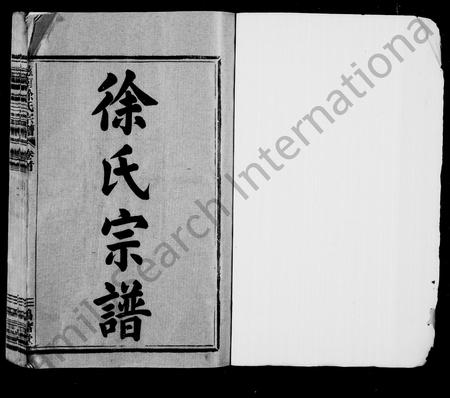 徐氏宗譜
徐氏宗譜 卷首
Family Search International